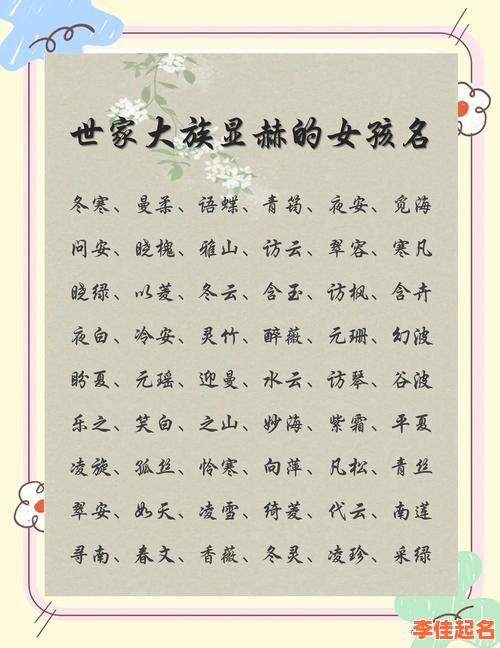 世家大族显赫的女孩名
冬寒、曼柔、语蝶、青筠、夜安、觅海
问安、晓槐、雅山、访云、翠容、寒凡
晓绿、以菱、冬云、含玉、访枫、含卉
夜白、冷安、灵竹、醉薇、元珊、幻波
盼夏、元瑶、迎曼、水云、访琴、谷波
乐之、笑白、之山、妙海、紫霜、平夏
凌旋、孤丝、怜寒、向萍、凡松、青丝
翠安、如天、凌雪、绮菱、代云、南莲
寻南、春文、香薇、冬灵、凌珍、采绿
李佳起名